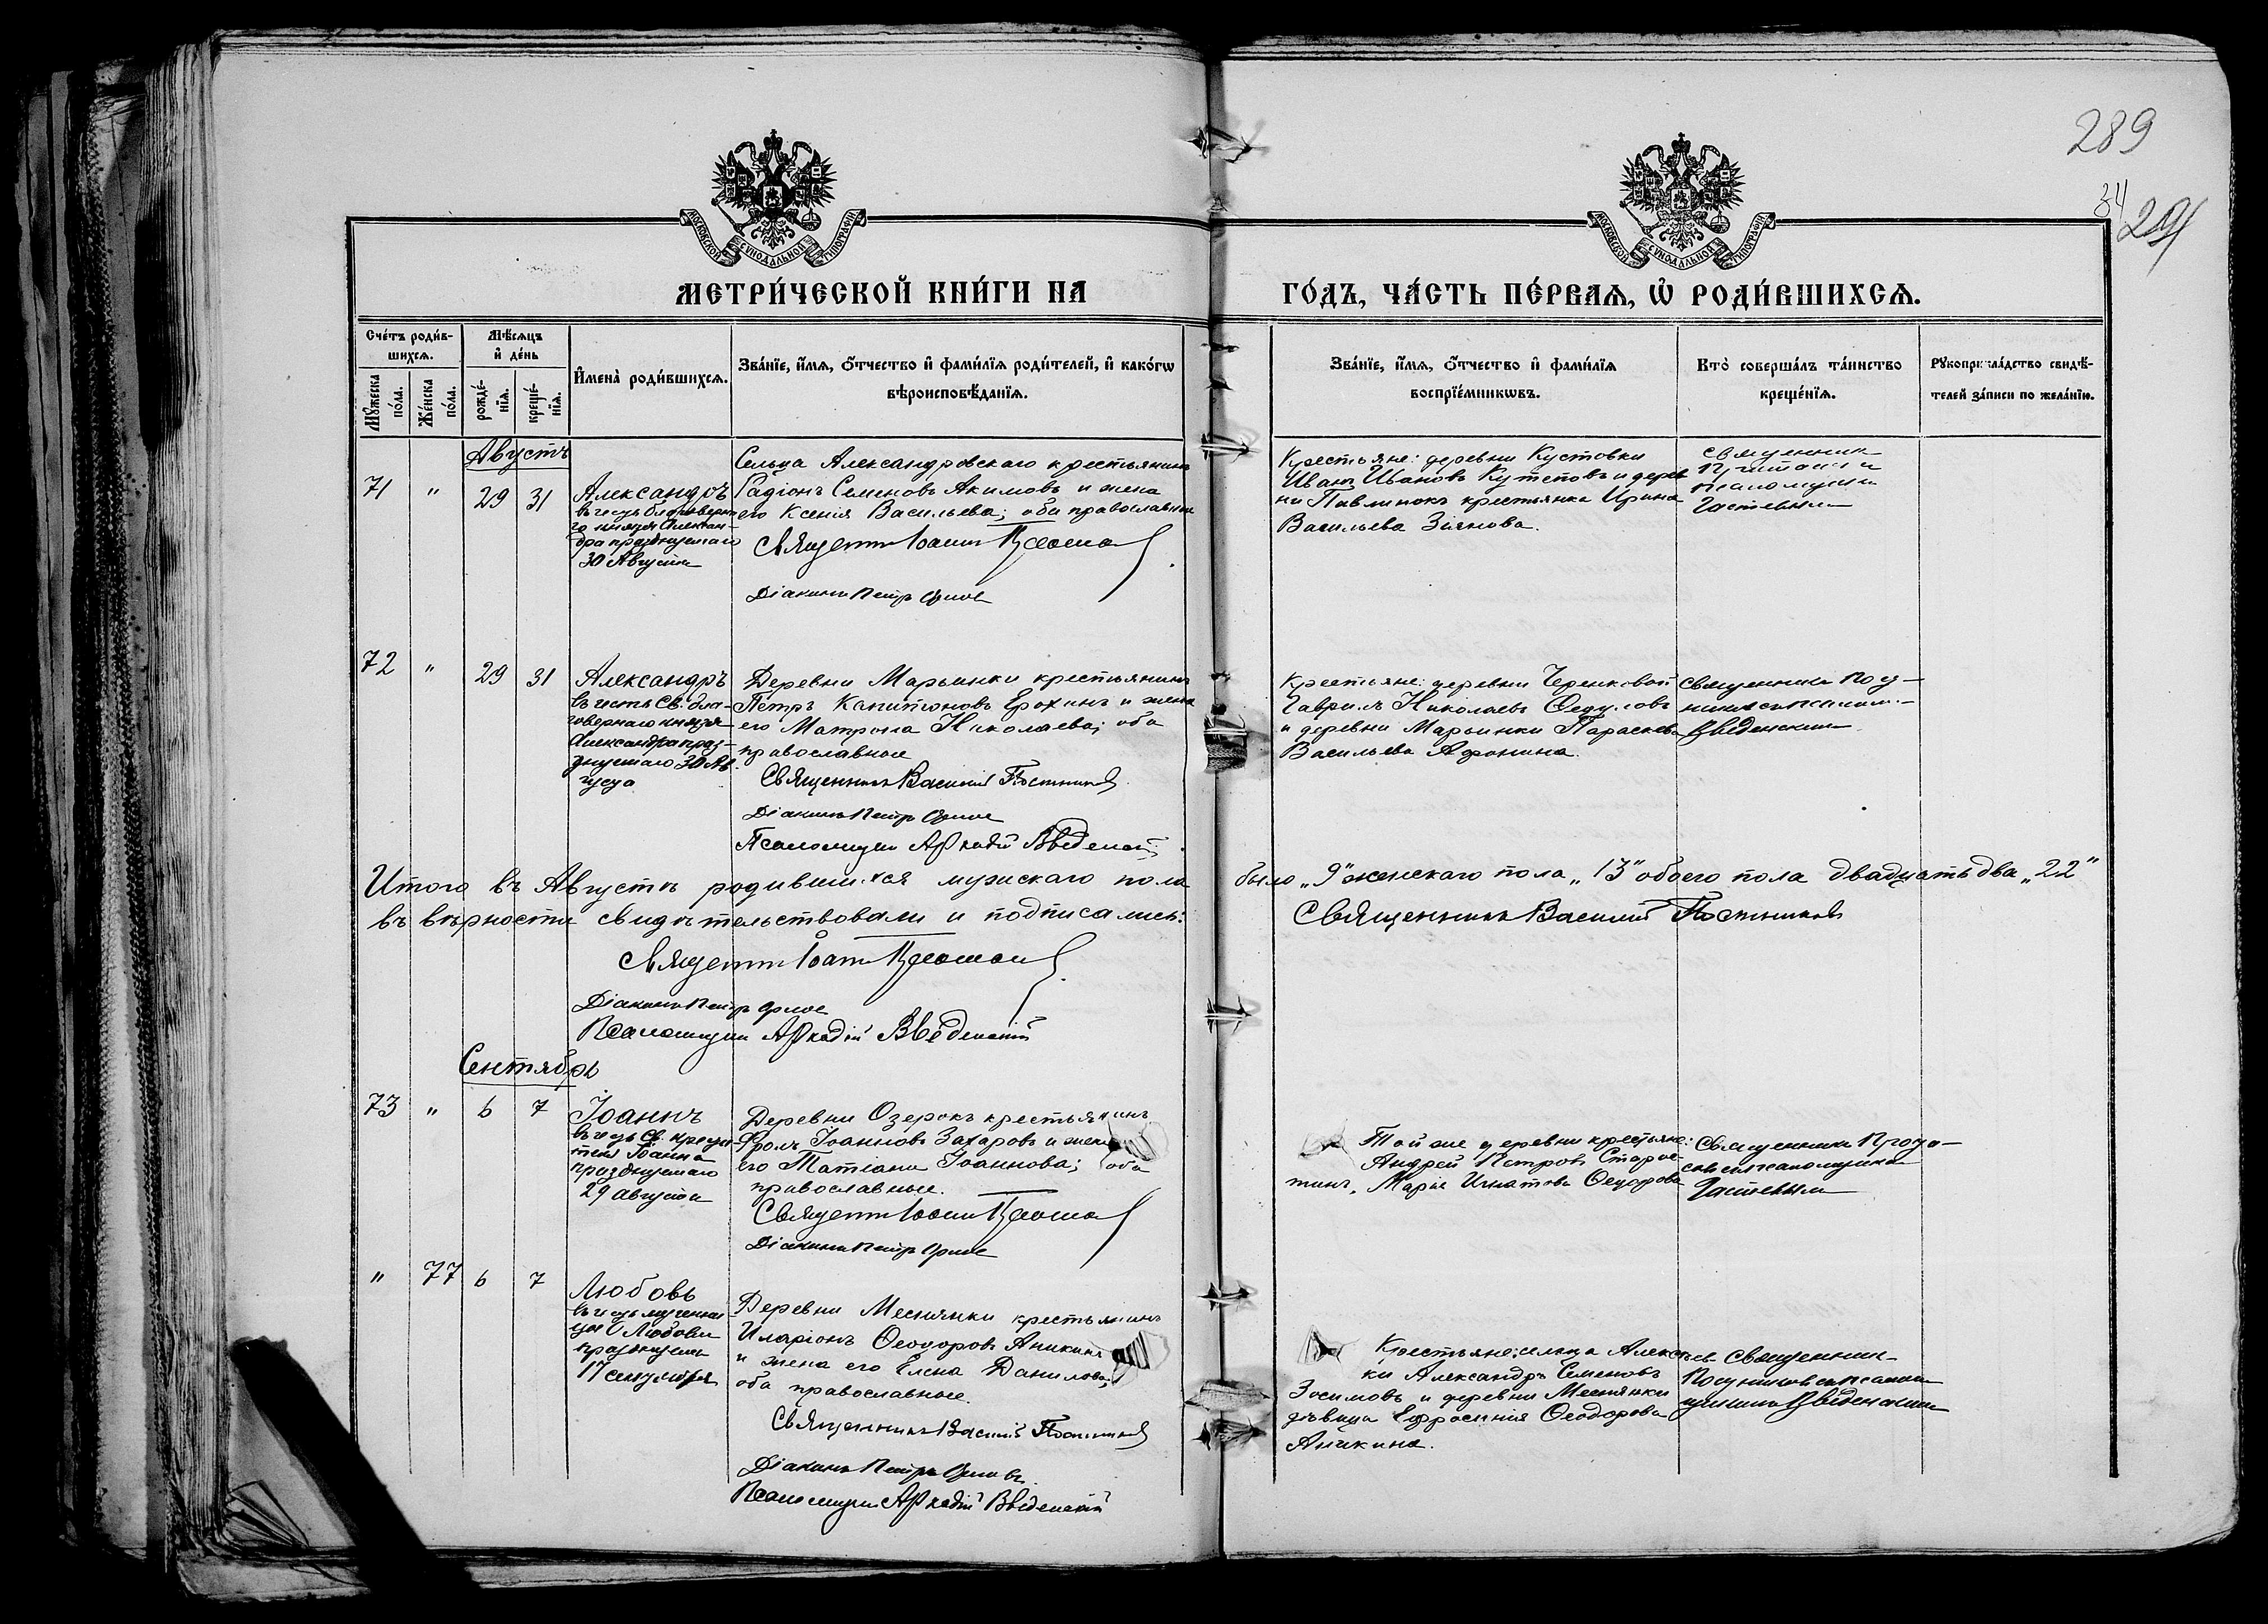 289
34
МОСКОВСКОЙ СѴНОДАЛЬНОЙ ТИПОГРАФІИ
МОСКОВСКОЙ СѴНОДАЛЬНОЙ ТИПОГРАФІИ
МЕТРИ́ЧЕСКОЙ КНИ́ГИ НА
ГО́ДЪ, ЧА́СТЬ ПЕ́РВАѦ, Ѽ РОДИ́ВШИХСѦ.
Сче́тъ роди́в-
шихсѧ.
Мꙋ́жеска
по́ла.
Же́нска
по́ла.
Мѣ́сѧцъ
и҆ де́нь
рожде́-
нїѧ.
креще́-
нїѧ.
И҆мена̀ роди́вшихсѧ.
Зва́нїе, и҆́мѧ, ѻ҆́тчество и҆ фами́лїѧ роди́телей, и҆ како́гѡ
вѣроисповѣ́данїѧ.
Зва́нїе, и҆́мѧ, ѻ҆́тчество и҆ фами́лїѧ
воспрїе́мникѡвъ.
Кто̀ соверша́лъ та́инство
креще́нїѧ.
Рꙋкоприкла́дство свидѣ́-
телей за́писи по жела́нїю.
Августъ
71 " 29 31
Александръ
въ честь благоверна-
го князя Алексан-
дра празднуемаго
30 Августа
Сельца Александровскаго крестьянинъ
Радіонъ Семеновъ Акимовъ и жена
его Ксенія Васильева; оба православные
Священникъ Іоаннъ
Діаконъ Петръ Орловъ
Крестьяне: деревни Кустовки
Иванъ Ивановъ Кутеповъ и дерев
ни Павлинокъ крестьянка Ирина
Васильева Зіянова.
Священник
псаломщик
72 " 29 31
Александръ
въ честь Св. бла-
говернаго князя
Александра праз-
днуемаго 30 Ав-
густа
Деревни Марьинки крестьянинъ
Петръ Капитоновъ Ерохинъ и жена
его Матрона Николаева; оба
православные
Священникъ Василій Постниковъ
Діаконъ Петръ Орловъ
Псаломщикъ Аркадій Введенскій
Крестьяне: деревни Черенковой
Гавриилъ Николаевъ Федуловъ
и деревни Марьинки Параскева
Васильева Афонина.
Священникъ Пост-
никовъ псалом-
Введенским
Итого въ Августѣ родившихся мужскаго пола
было „9" женскаго пола „13" обоего пола двадцать два „22"
въ вѣрности свидѣтельствовали и подписались:
Священникъ Василій Постниковъ
Священникъ Іоаннъ
Діаконъ Петръ Орловъ
Псаломщикъ Аркадій Введенскій
Сентябрь
73 " 6 7
Іоаннъ
въ честь Св. крести-
теля Іоанна
празднуемаго
29 августа
Деревни Озерокъ крестьянинъ
Фролъ Іоанновъ Захаровъ и жена
его Татіана Іоаннова; оба
православные.
Священникъ Іоаннъ
Діаконъ Петръ Орловъ
Той же деревни крестьяне:
Андрей Петровъ Старос-
тинъ, Марія Игнатова Ѳеодорова
Священникъ
псаломщикомъ
" 77 6 7
Любовь
въ честь мучени-
цы Любови
празднуемой
17 сентября
Деревни Меснянки крестьянинъ
Иларіонъ Ѳеодоровъ Аникинъ
и жена его Елена Данилова;
оба православные.
Священникъ Василій Постниковъ
Діаконъ Петръ Орловъ
Псаломщикъ Аркадій Введенскій
Крестьяне: сельца Алексѣев-
ки Александръ Семеновъ
Зосимовъ и деревни Меснянки
дѣвица Ефросинія Ѳеодорова
Аникина.
Священник
Постников псалом-
щиком Введенским